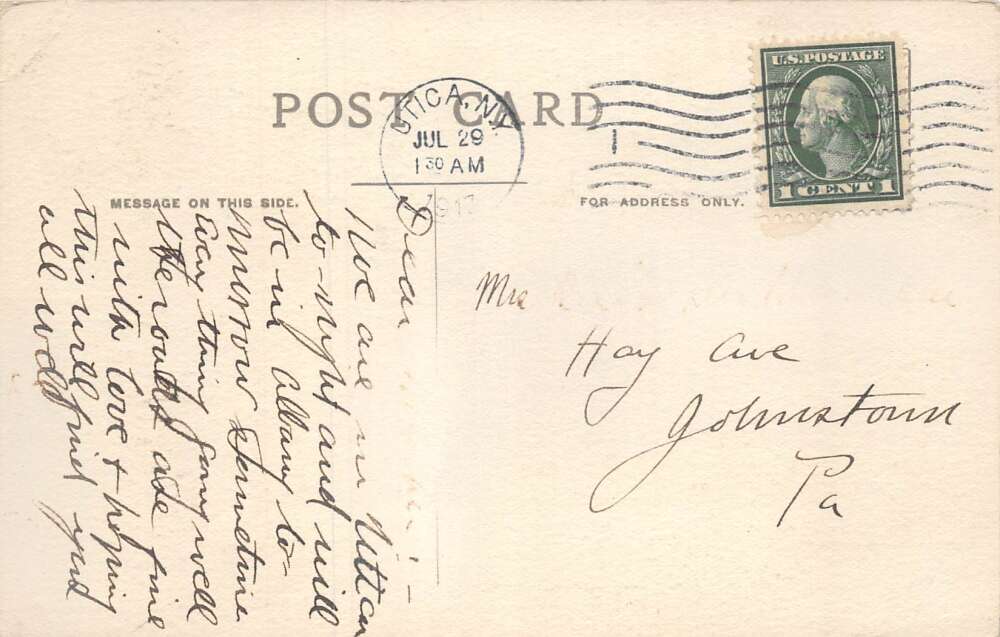 POST CARD
UTICA, N.Y.
JUL 29
1 30 AM
1
U.S. POSTAGE
1 CENT 1
MESSAGE ON THIS SIDE.
FOR ADDRESS ONLY.
Dear
We are in Utica
to-night and will
be in Albany to-
morrow sometime
Every thing going well
the roads are fine
with love & hoping
this will find you
all well
Mrs
Hay Ave
Johnstown
Pa